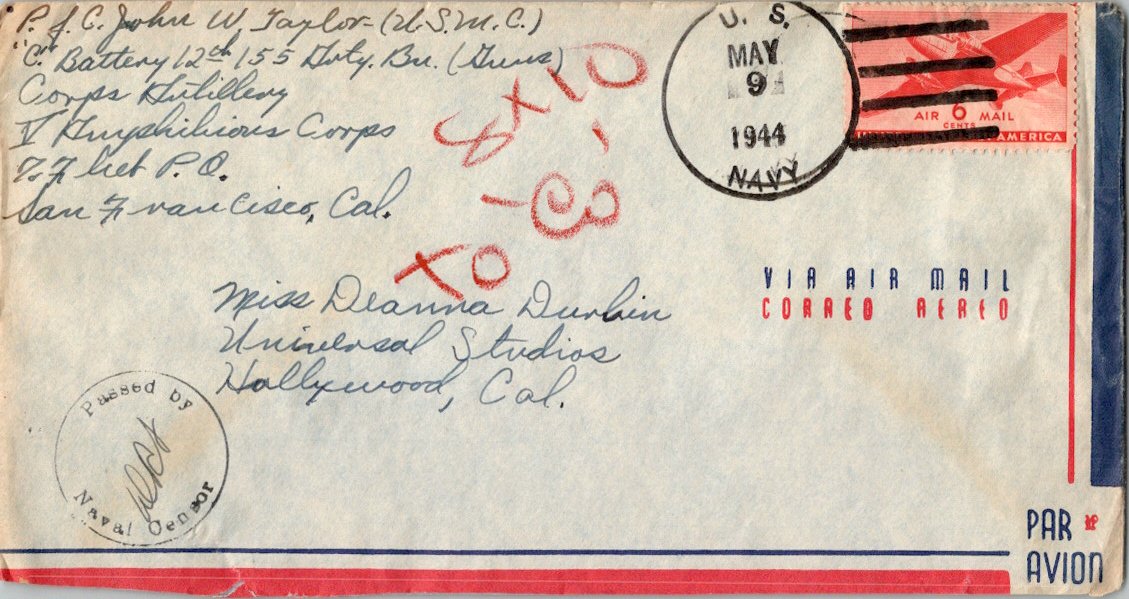 P.F.C. John W. Taylor (U.S.M.C.)
"C" Battery 12th 155 Arty. Bn. (Guns)
Corps Artillery
V Amphibious Corps
℅ Fleet P.O.
San Francisco, Cal.
8X10
U. S.
MAY
9
1944
NAVY
AIR 6 MAIL
CENTS
AMERICA
Miss Deanna Durbin
Universal Studios
Hollywood, Cal.
VIA AIR MAIL
CORREO AEREO
Passed by
Naval Censor
PAR
AVION